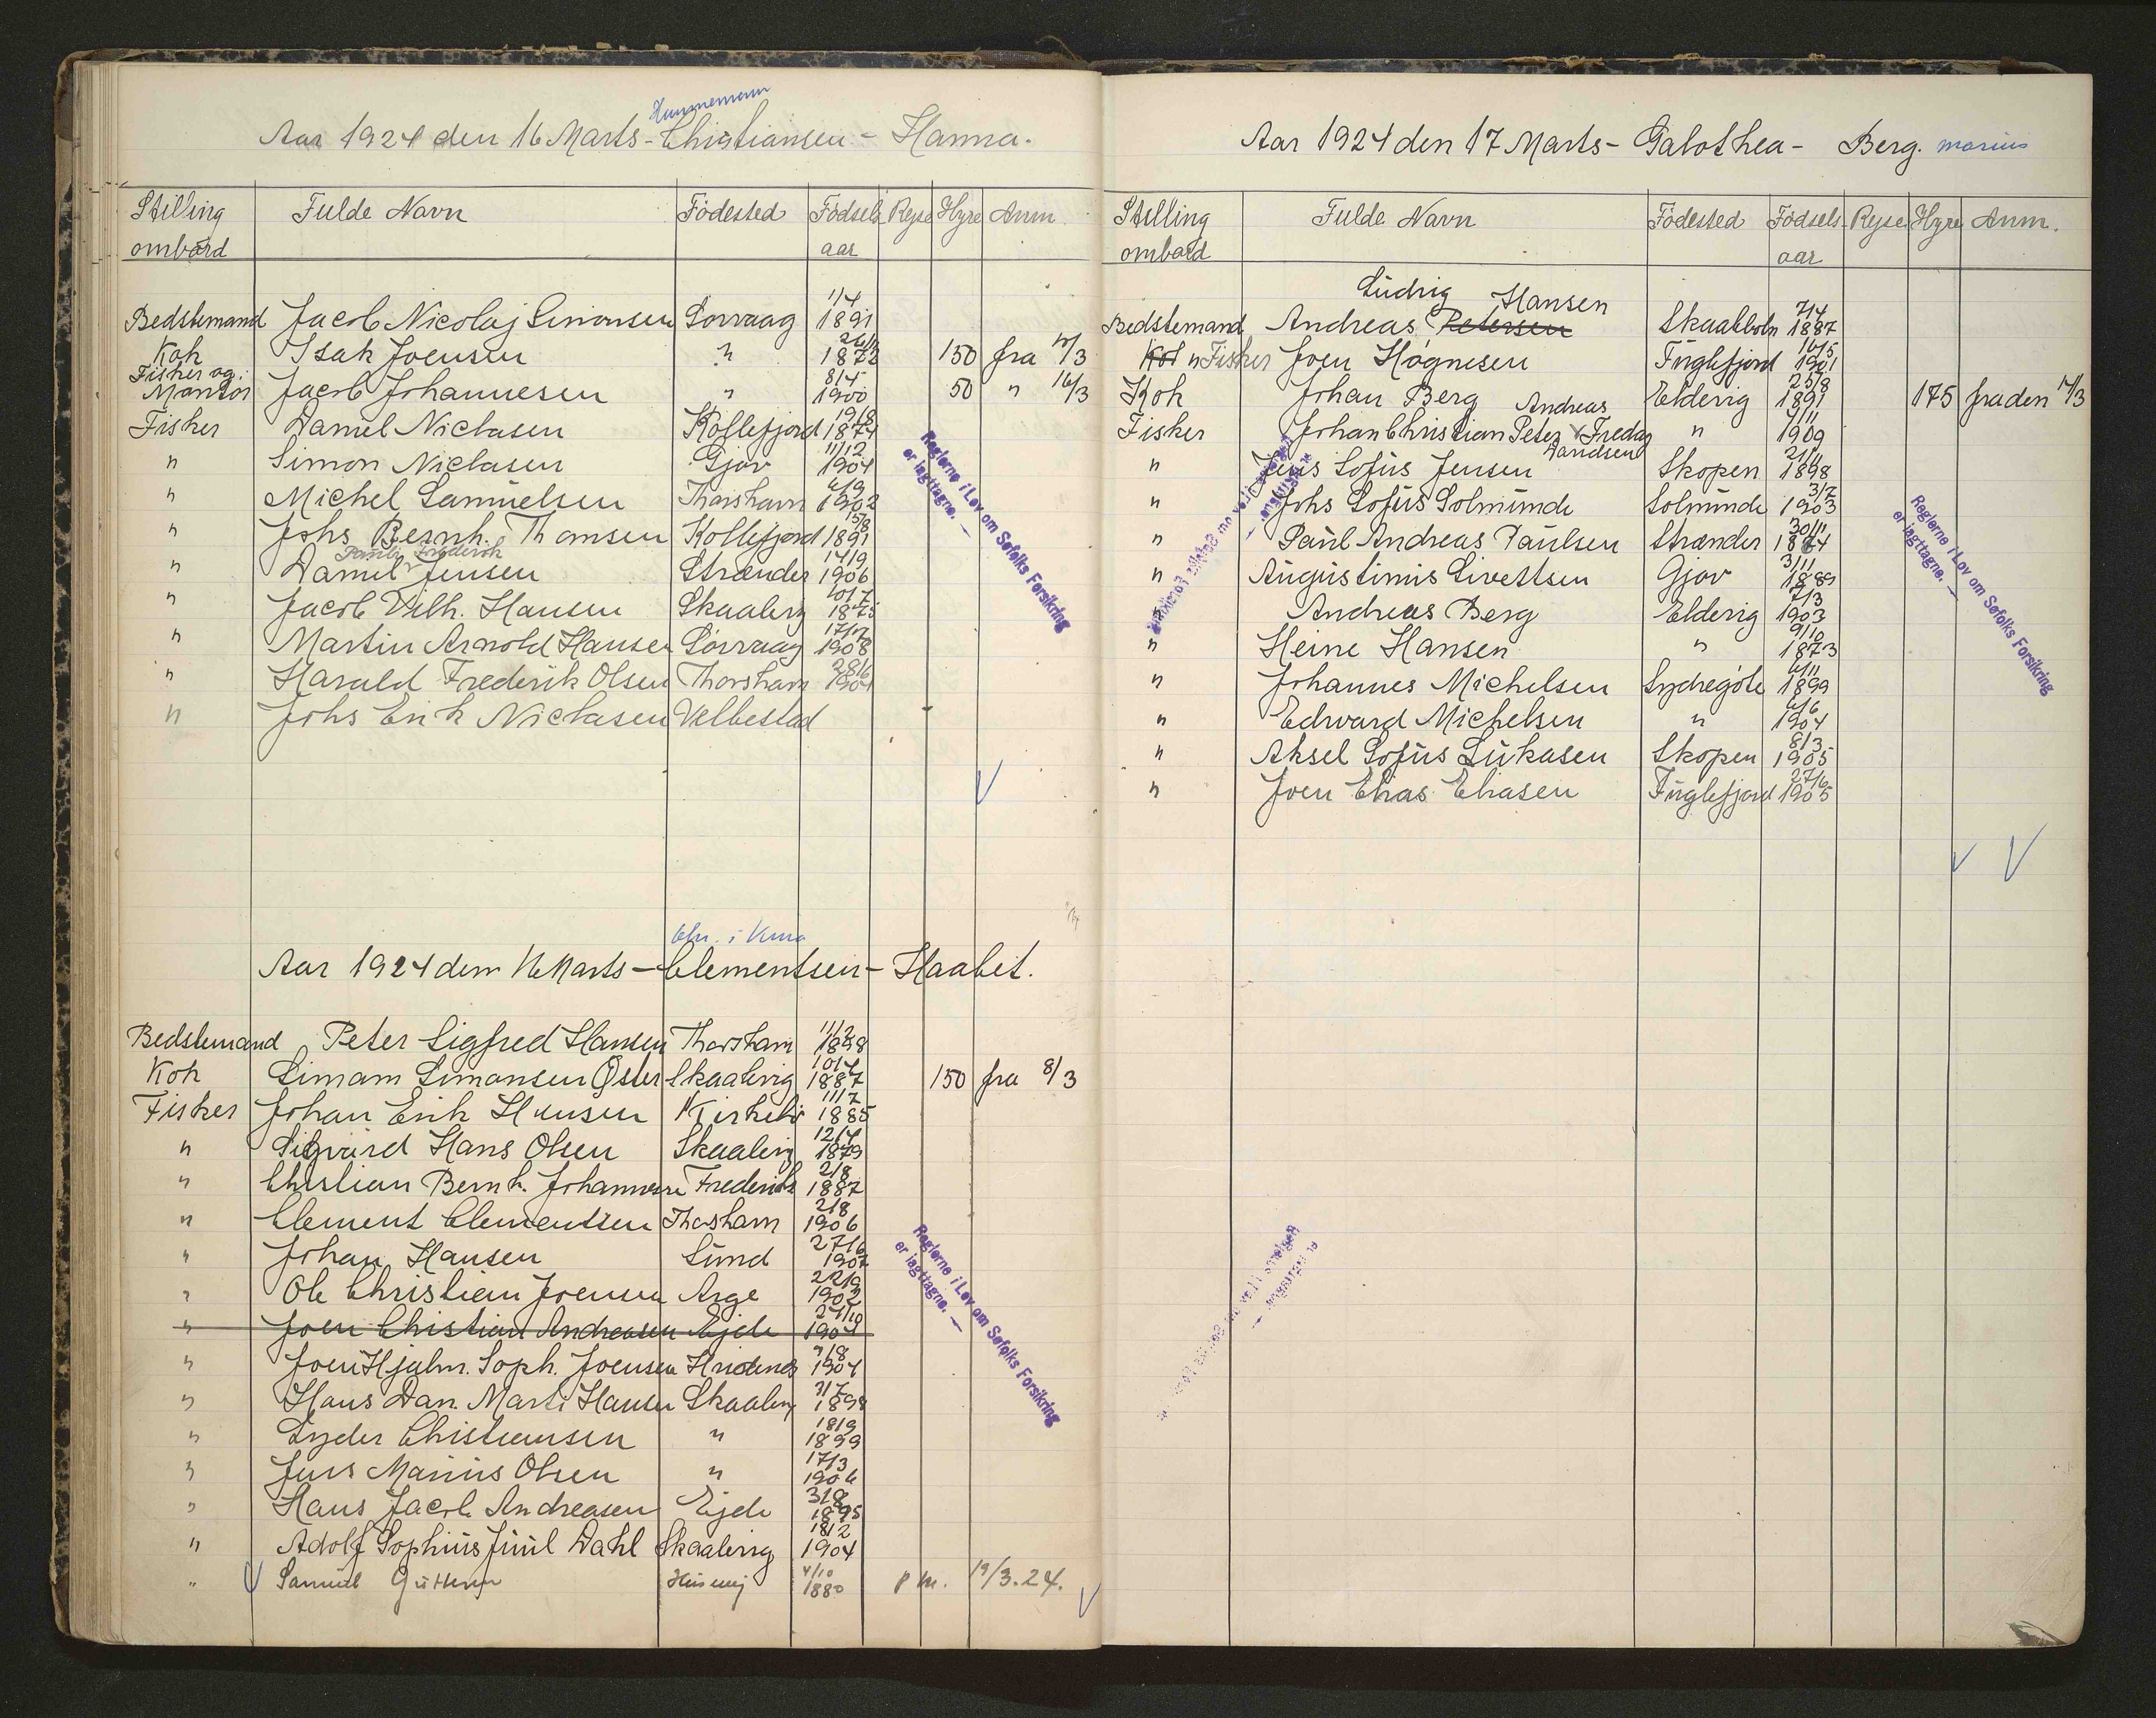 Hannemann
Aar 1924 den 16 Marts - Christiansen - Hanna.
Stilling ombord Fulde Navn Födested Födsels aar Rejse Hyre Anm.
Bedstemand Jacob Nicolaj Simonsen Sorvaag 1/4 1891
Kok Isak Joensen " 1872 150 fra 15/3
Fisker og Mantor Jacob Johannesen " 8/5 1900 50 " 16/3
Fisker Daniel Niclasen Kollefjord 19/8 1874
" Simon Niclasen Gjov 11/12 1904
" Michel Samuelsen Thorshavn 6/9 1902
" Johs Bernh. Thomsen Kollefjord 15/8 1891
" Daniel Jensen Strænder 17/9 1906
Frederik
" Jacob Vilh. Hansen Skaalevig 10/7 1875
" Martin Arnold Hansen Sorvaag 1908
" Harald Frederik Olsen Thorshavn 28/6 1904
" Johs Erik Niclasen Velbestad
Reglerne i Lov om Søfolks Forsikring
er iagttagne. —
Chr. i Kina
Aar 1924 den Marts - Clementsen - Haabet.
Bedstemand Peter Sigfred Hansen Thorshavn 11/2 1898
Kok Simon Simonsen Öster Skaalevig 10/4 1887 150 fra 8/3
Fisker Johan Erik Hansen Kirkebö 11/7 1885
" Sigvard Hans Olsen Skaalevig 12/4 1879
" Christian Bernh. Johannesen Frederiks 2/8 1887
" Clement Clementsen Thorshavn 2/8 1906
" Johan Hansen Sund 27/6 1907
" Ole Christian Joensen Arge 22/9 1902
" Joen Christian Andreasen Ejde 27/10 1904
" Joen Hjalm. Soph. Joensen Hvidenes 1904
" Hans Dan. Marti Hansen Skaalevig 31/7 1898
" Lyder Christiansen " 18/9 1899
" Jens Marius Olsen " 17/3 1906
" Hans Jacob Andreasen Ejde 31/8 1895
" Adolf Sophius Juul Dahl Skaalevig 18/2 1904
" Samuel Guttesen Husevig 4/10 1880 P M. 19/3.24.
Reglerne i Lov om Søfolks Forsikring
er iagttagne. —
Aar 1924 den 17 Marts - Galathea - Berg. Marius
Stilling ombord Fulde Navn Födested Födsels aar Rejse Hyre Anm.
Ludvig Hansen
Bedstemand Andreas Petersen Skaalebotn 7/4 1887
Kok " Fisker Joen Högnesen Fuglefjord 16/5 1901
Kok Johan Berg Eldevig 25/8 1891 175 fra den 14/3
Andreas
Fisker Johan Christian Peter Fredag " 1909
Davidsen
" Jens Sofus Jensen Skopen 21/11 1898
" Johs Sofus Solmunde Solmunde 3/7 1903
" Paul Andreas Paulsen Strænder 30/11 1874
" Augustinus Sivertsen Gjov 3/11 1889
" Andreas Berg Eldevig 7/3 1903
" Heine Hansen " 9/10 1873
" Johannes Michelsen Sydregöte 6/11 1899
" Edvard Michelsen " 6/6 1904
" Aksel Sofus Lukasen Skopen 8/3 1905
" Joen Elias Eliasen Fuglefjord 27/6 1905
Reglerne i Lov om Søfolks Forsikring
er iagttagne. —